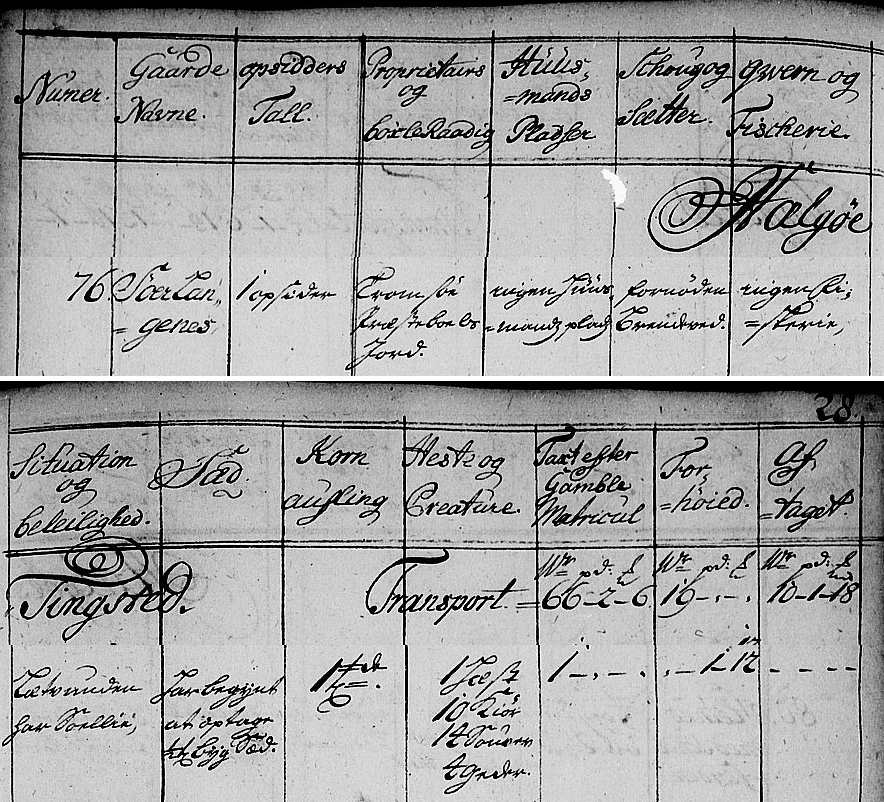 Numer.
Gaarde
Navne.
opsidders
Tall.
Proprietairs
og
böxleRaadig
Huus,
=mands
Pladser
Schoug og
Sætter.
qvern og
Fischerie.
Hælgöe
76.
SöerLan„
=genes,
1 opsider
Tromsöe
Præsteboels
Jord.
ingen Huus,
=mands plads
fornöden
Brendeved.
ingen fi;
=skerie,
28.
Situation
og
beleilighed.
Sæd.
Korn
aufling
Heste og
Creature.
Taxt efter
Gamble
Matricul
For„
=höied.
Af,
=taget.
Tingsted.
Transport =
66-2-6
19-,-,
10-1-18
Lætvunden
har Soellie,
har begynt
at optage
byg Sæd.
1 Hæst
10 Kiör
14 Souver
4 Geder.
1-,-,
,-1-12
- - - -